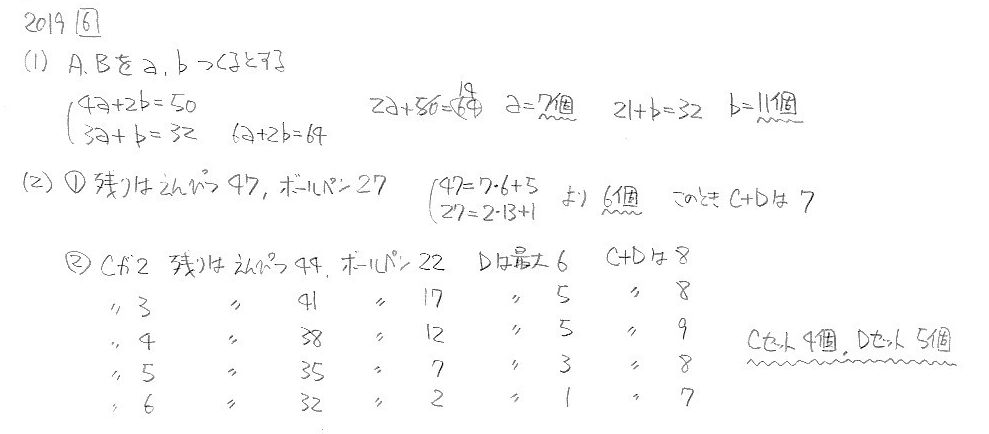 2019 6
(1) A、Bをa、bつくるとする
4a+2b=50
3a+b=32 6a+2b=64 2a+50=64 14 a=7個 21+b=32 b=11個
(2) ① 残りはえんぴつ47、ボールペン27 47=7・6+5 より 6個 このとき C+Dは 7
27=2・13+1
② Cが2 残りは えんぴつ44、ボールペン22 Dは最大6 C+Dは8
〃 3 〃 41 〃 17 〃 5 〃 8
〃 4 〃 38 〃 12 〃 5 〃 9
〃 5 〃 35 〃 7 〃 3 〃 8
〃 6 〃 32 〃 2 〃 1 〃 7
Cセット4個、Dセット5個